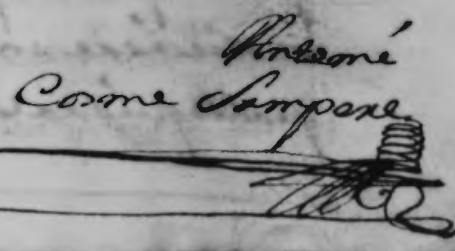 Antemé
Cosme Sempere